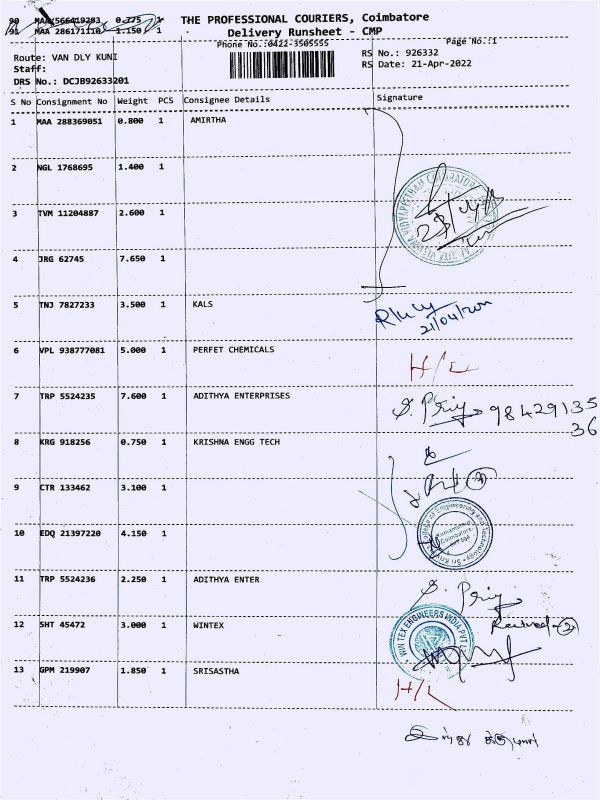 90 MAA 566419293 0.775 1
91 MAA 286171110 1.150 1
THE PROFESSIONAL COURIERS, Coimbatore
Delivery Runsheet - CMP
Phone No.:0422-3505555
Page No.:1
Route: VAN DLY KUNI
Staff:
DRS No.: DCJB92633201
RS No.: 926332
RS Date: 21-Apr-2022
S No Consignment No Weight PCS Consignee Details Signature
1 MAA 288369051 0.800 1 AMIRTHA
2 NGL 1768695 1.400 1
3 TVM 11204887 2.600 1
4 JRG 62745 7.650 1
5 TNJ 7827233 3.500 1 KALS
21/04/2022
6 VPL 938777081 5.000 1 PERFET CHEMICALS
H/L
7 TRP 5524235 7.600 1 ADITHYA ENTERPRISES
S. Priya 98429135
36
8 KRG 918256 0.750 1 KRISHNA ENGG TECH
9 CTR 133462 3.100 1
10 EDQ 21397220 4.150 1
College of Engineering and Technology
Coimbatore
11 TRP 5524236 2.250 1 ADITHYA ENTER
S. Priya
12 SHT 45472 3.000 1 WINTEX
WIN TEX ENGINEERS INDIA PVT
Received
13 GPM 219907 1.850 1 SRISASTHA
H/L